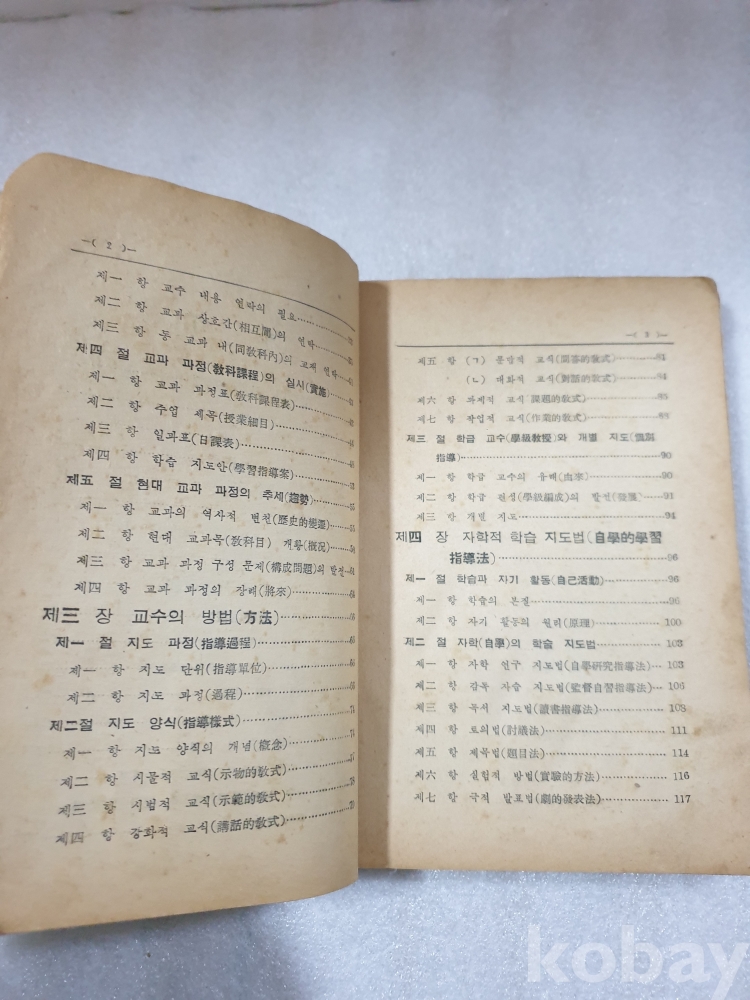 —( 2 )—
제一 항 교수 내용 연락의 필요
제二 항 교과 상호간(相互間)의 연락
제三 항 동 교과 내(同敎科內)의 교재 연락
제四 절 교과 과정(敎科課程)의 실시(實施)
제一 항 교과 과정표(敎科課程表)
제二 항 수업 세목(授業細目)
제三 항 일과표(日課表)
제四 항 학습 지도안(學習指導案)
제五 절 현대 교과 과정의 추세(趨勢)
제一 항 교과의 역사적 변천(歷史的變遷)
제二 항 현대 교과목(敎科目) 개황(槪況)
제三 항 교과 과정 구성 문제(構成問題)의 발전
제四 항 교과 과정의 장래(將來)
제三 장 교수의 방법(方法)
제一 절 지도 과정(指導過程)
제一 항 지도 단위(指導單位)
제二 항 지도 과정(過程)
제二절 지도 양식(指導樣式)
제一 항 지도 양식의 개념(槪念)
제二 항 시물적 교식(示物的敎式)
제三 항 시범적 교식(示範的敎式)
제四 항 강화적 교식(講話的敎式)
—( 3 )—
제五 항 (ㄱ) 문답적 교식(問答的敎式) 84
(ㄴ) 대화적 교식(對話的敎式) 84
제六 항 과제적 교식(課題的敎式) 88
제七 항 작업적 교식(作業的敎式) 88
제三 절 학급 교수(學級敎授)와 개별 지도(個別
指導) 90
제一 항 학급 교수의 유래(由來) 90
제二 항 학급 편성(學級編成)의 발전(發展) 91
제三 항 개별 지도 94
제四 장 자학적 학습 지도법(自學的學習
指導法) 96
제一 절 학습과 자기 활동(自己活動) 96
제一 항 학습의 본질 96
제二 항 자기 활동의 원리(原理) 100
제二 절 자학(自學)의 학습 지도법 103
제一 항 자학 연구 지도법(自學硏究指導法) 103
제二 항 감독 자습 지도법(監督自習指導法) 106
제三 항 독서 지도법(讀書指導法) 108
제四 항 토의법(討議法) 111
제五 항 제목법(題目法) 114
제六 항 실험적 방법(實驗的方法) 116
제七 항 극적 발표법(劇的發表法) 117
kobay